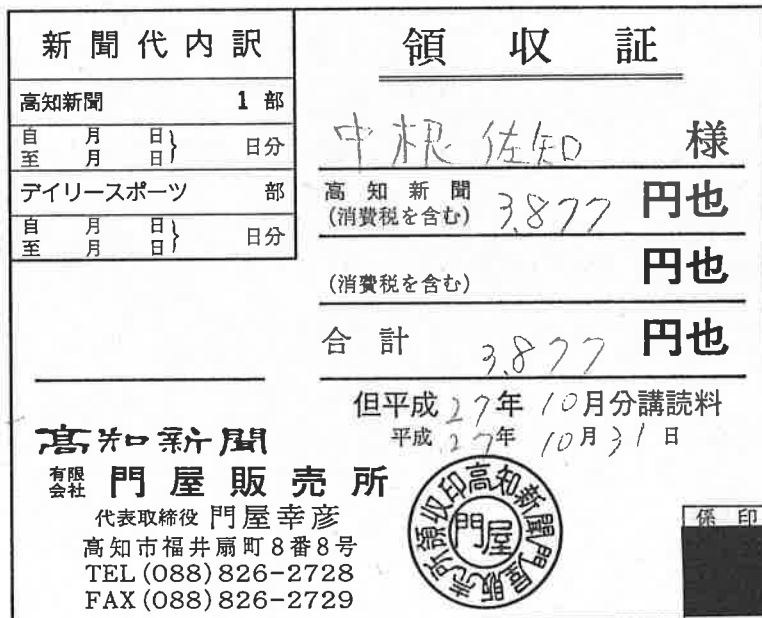 新聞代内訳
高知新聞 1 部
自 月 日
至 月 日 } 日分
デイリースポーツ 部
自 月 日
至 月 日 } 日分
領収証
中根 佐知 様
高知新聞
(消費税を含む) 3,877 円也
(消費税を含む) 円也
合計 3,877 円也
但平成27年10月分講読料
平成27年10月31日
高知新聞
有限会社 門屋販売所
代表取締役 門屋幸彦
高知市福井扇町8番8号
TEL(088)826-2728
FAX(088)826-2729
高知新聞門屋販売所領収印
門屋
係印